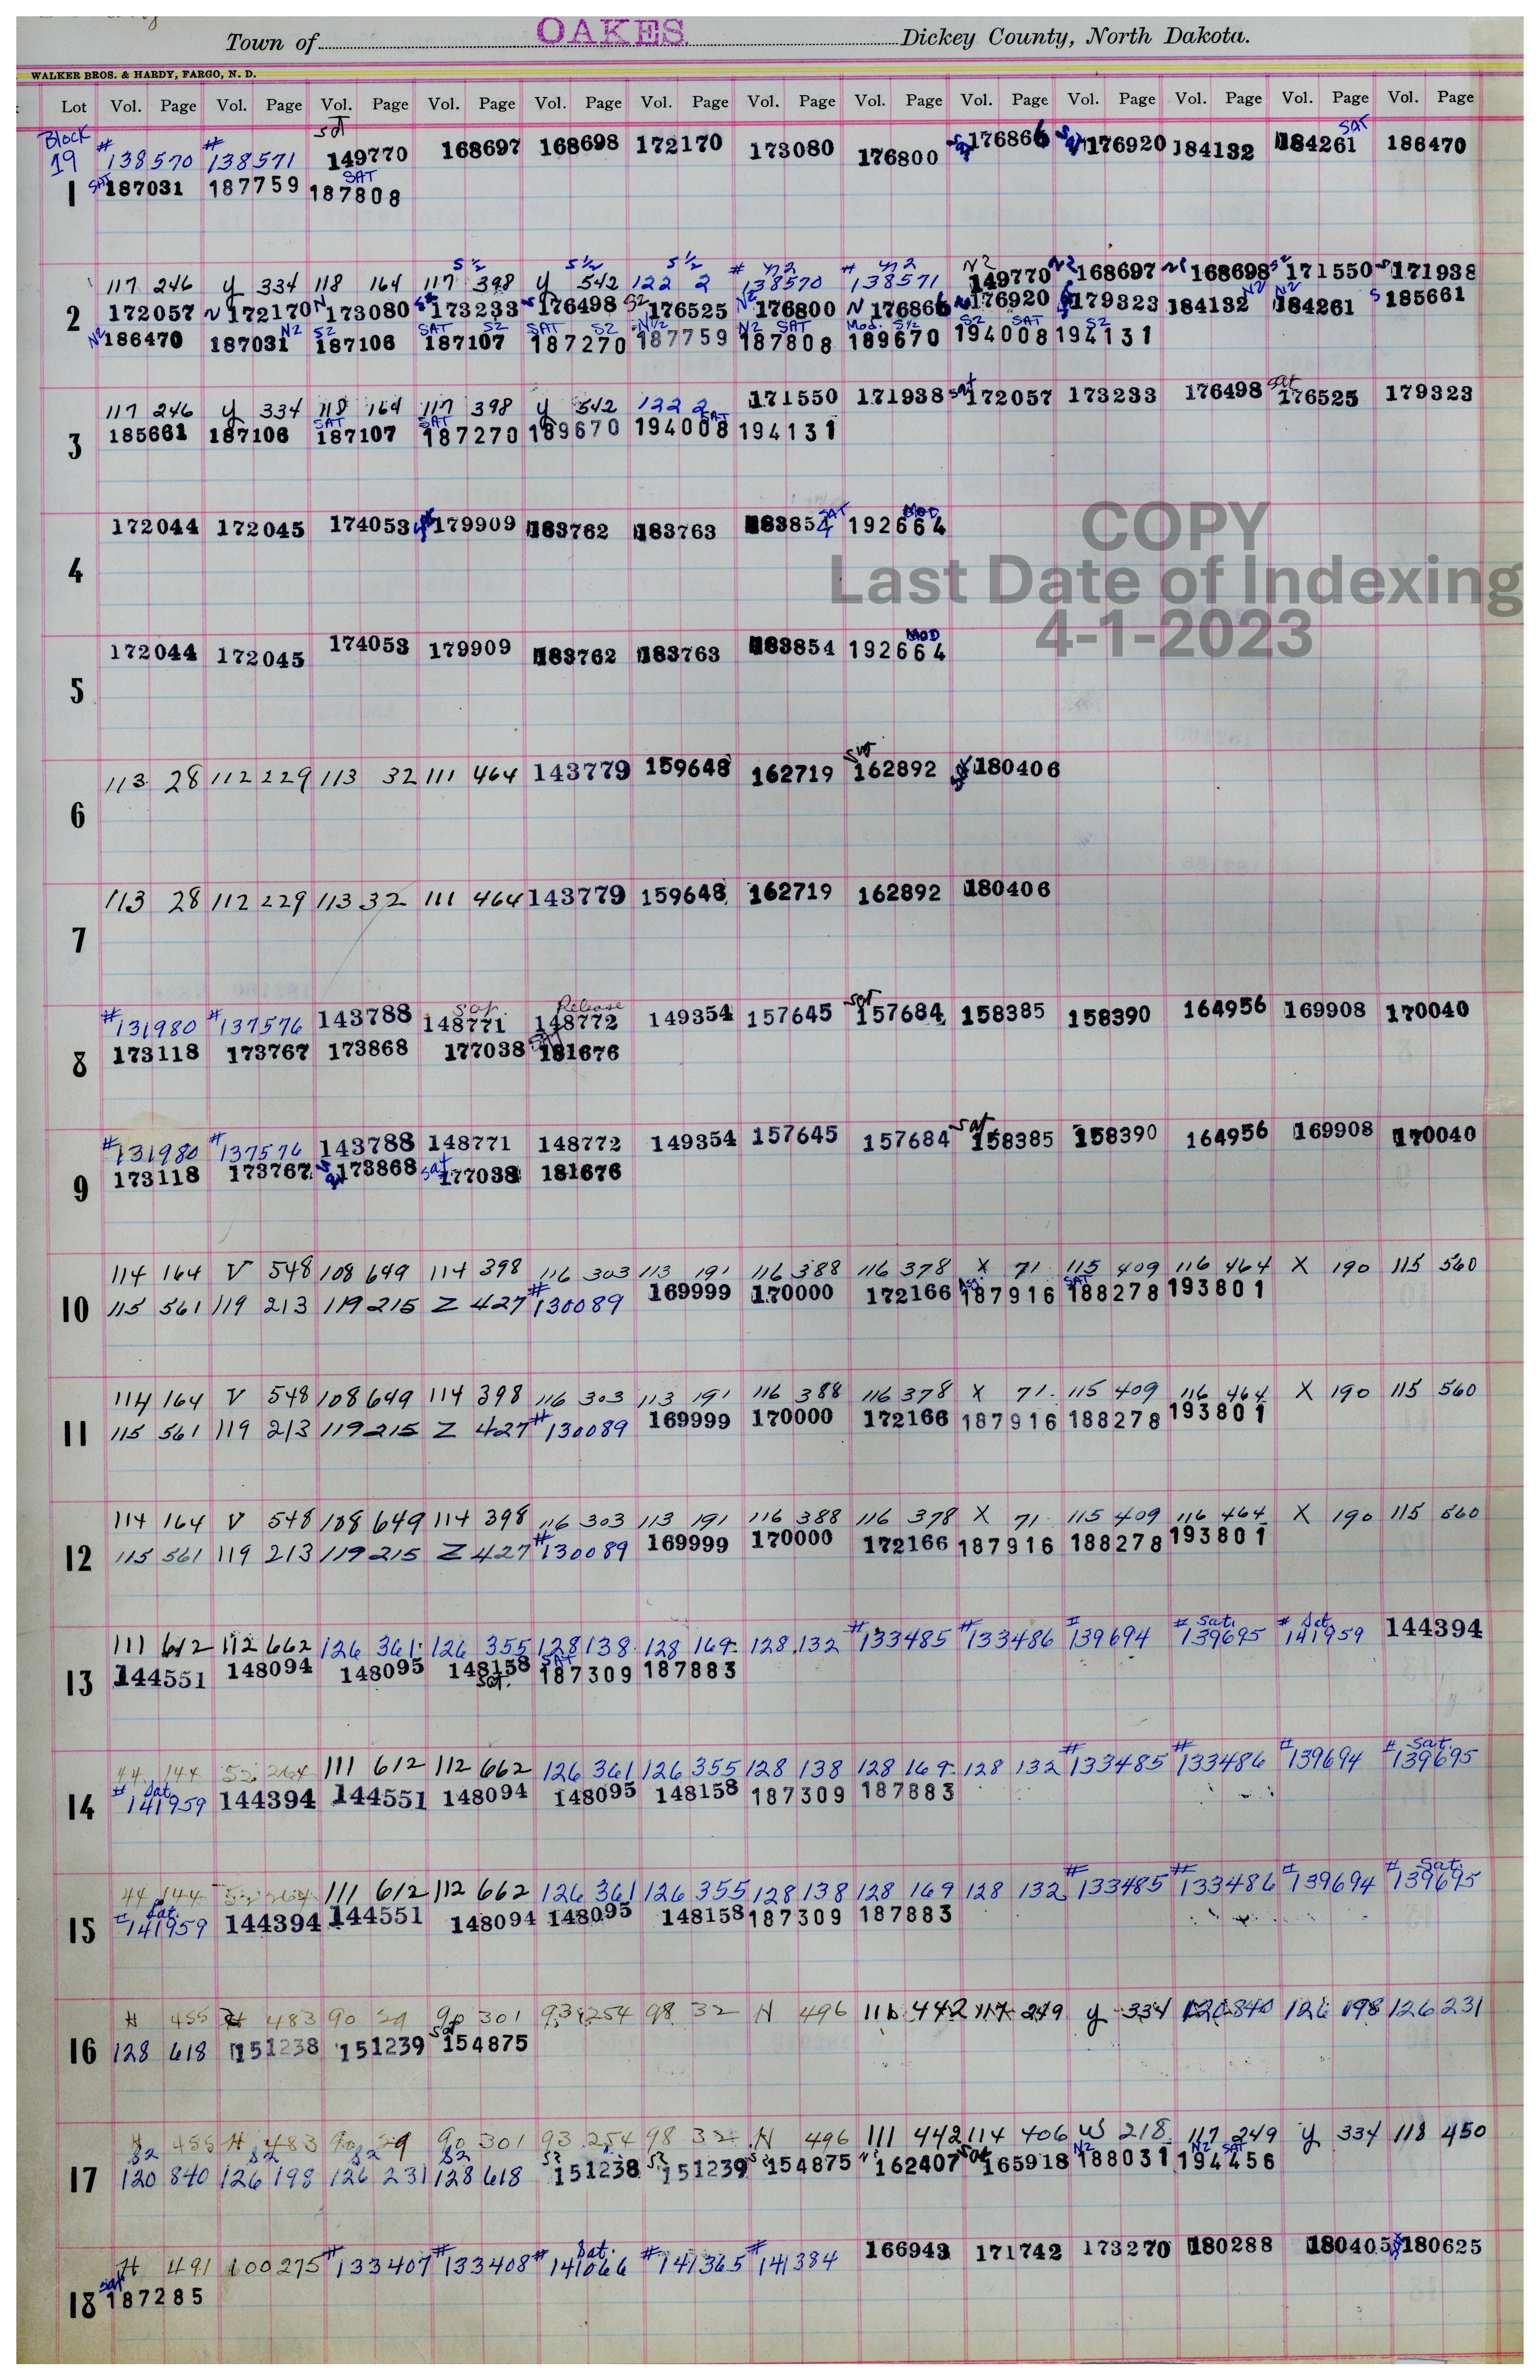 Town of OAKES Dickey County, North Dakota.
WALKER BROS. & HARDY, FARGO, N. D.
Lot Vol. Page Vol. Page Vol. Page Vol. Page Vol. Page Vol. Page Vol. Page Vol. Page Vol. Page Vol. Page Vol. Page Vol. Page Vol. Page
Block
19
1
#138570 #138571 149770 168697 168698 172170 173080 176800 176866 176920 184132 SAT 184261 186470
SAT 187031 187759 SAT 187808
2
S 1/2 S 1/2 S 1/2 n2 n2 N2 N2
117 246 y 334 118 164 117 398 y 542 122 2 #138570 #138571 149770 168697 168698 171550 171938
172057 N 172170 N 173080 173233 176498 S2 176525 N2 176800 N 176866 176920 179323 184132 N2 184261 N2 S 185661
N2 186470 187031 N2 S2 187106 SAT S2 187107 SAT S2 187270 N1/2 187759 N2 SAT 187808 Mod. S1/2 189670 S2 SAT 194008 S2 194131
3
117 246 y 334 118 164 117 398 y 542 122 2 171550 171938 sat 172057 173233 176498 sat 176525 179323
185661 187106 SAT 187107 SAT 187270 189670 SAT 194008 194131
4
172044 172045 174053 179909 183762 183763 183854 SAT MOD 192664
COPY
Last Date of Indexing
4-1-2023
5
172044 172045 174053 179909 183762 183763 183854 MOD 192664
6
113 28 112 229 113 32 111 464 143779 159648 162719 162892 180406
7
113 28 112 229 113 32 111 464 143779 159648 162719 162892 180406
8
#131980 #137576 143788 sat. 148771 Release 148772 149354 157645 sat 157684 158385 158390 164956 169908 170040
173118 173767 173868 177038 181676
9
#131980 #137576 143788 148771 148772 149354 157645 157684 sat 158385 158390 164956 169908 170040
173118 173767 173868 sat 177038 181676
10
114 164 V 548 108 649 114 398 116 303 113 191 116 388 116 378 X 71 115 409 116 464 X 190 115 560
115 561 119 213 119 215 Z 427 #130089 169999 170000 172166 187916 SAT 188278 193801
11
114 164 V 548 108 649 114 398 116 303 113 191 116 388 116 378 X 71 115 409 116 464 X 190 115 560
115 561 119 213 119 215 Z 427 #130089 169999 170000 172166 187916 188278 193801
12
114 164 V 548 108 649 114 398 116 303 113 191 116 388 116 378 X 71 115 409 116 464 X 190 115 560
115 561 119 213 119 215 Z 427 #130089 169999 170000 172166 187916 188278 193801
13
111 612 112 662 126 361 126 355 128 138 128 169 128 132 #133485 #133486 #139694 #Sat. 139695 #Sat. 141959 144394
144551 148094 148095 148158 sat. SAT 187309 187883
14
44 144 52 264 111 612 112 662 126 361 126 355 128 138 128 169 128 132 #133485 #133486 #139694 #Sat. 139695
#Sat. 141959 144394 144551 148094 148095 148158 187309 187883
15
44 144 52 264 111 612 112 662 126 361 126 355 128 138 128 169 128 132 #133485 #133486 #139694 #Sat. 139695
#Sat. 141959 144394 144551 148094 148095 148158 187309 187883
16
H 455 H 483 90 29 90 301 93 254 98 32 N 496 111 442 117 249 y 334 120 840 126 198 126 231
128 618 151238 151239 sat 154875
17
H 455 H 483 90 29 90 301 93 254 98 32 N 496 111 442 114 406 W 218 117 249 y 334 118 450
S2 S2 S2 S2
120 840 126 198 126 231 128 618 S2 151238 S2 151239 154875 162407 sat 165918 N2 188031 N2 SAT 194456
18
H 491 100 275 #133407 #133408 #Sat. 141066 #141365 #141384 166943 171742 173270 180288 180405 180625
sat 187285